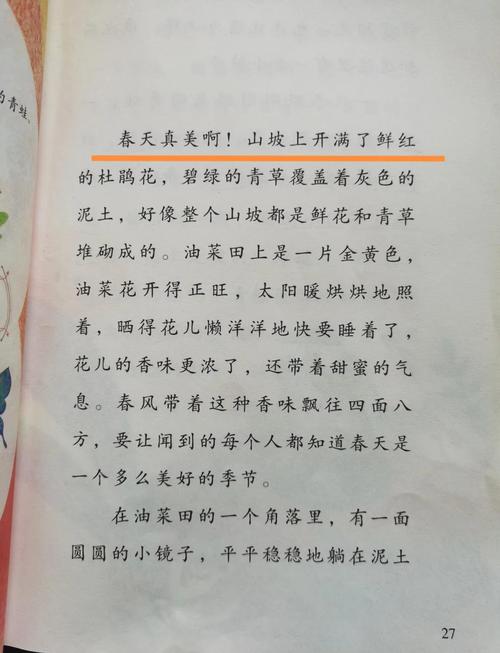 的青蛙、
春天真美啊！山坡上开满了鲜红
的杜鹃花，碧绿的青草覆盖着灰色的
泥土，好像整个山坡都是鲜花和青草
堆砌成的。油菜田上是一片金黄色，
油菜花开得正旺，太阳暖烘烘地照
着，晒得花儿懒洋洋地快要睡着了，
花儿的香味更浓了，还带着甜蜜的气
息。春风带着这种香味飘往四面八
方，要让闻到的每个人都知道春天是
一个多么美好的季节。
在油菜田的一个角落里，有一面
圆圆的小镜子，平平稳稳地躺在泥土
27